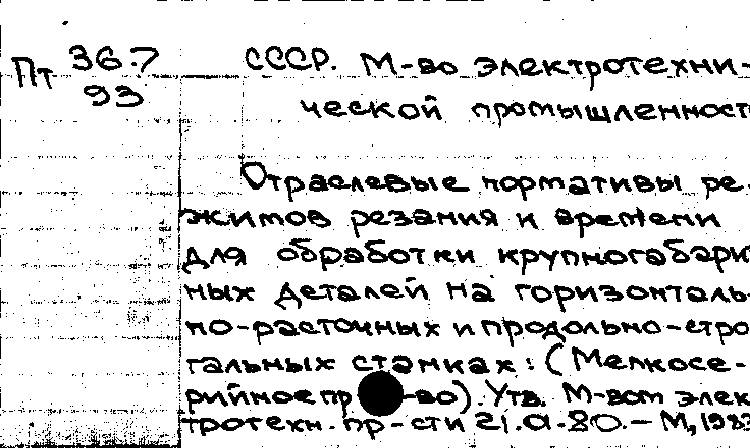 Пт 36.7 СССР. М-во электротехни-
93 ческой промышленност
Отраслевые нормативы ре-
жимов резания и времени
для обработки крупногабари
ных деталей на горизонталь-
но-расточных и продольно-стро
гальных станках: (Мелкосе-
рийное пр -во). Утв. М-вом элек
тротехн. пр-сти 21.01.80. - М, 198